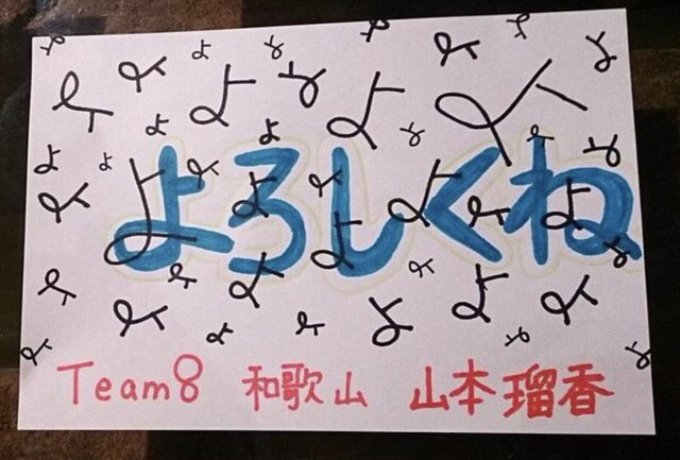 よろしくね
Team8 和歌山 山本瑠香